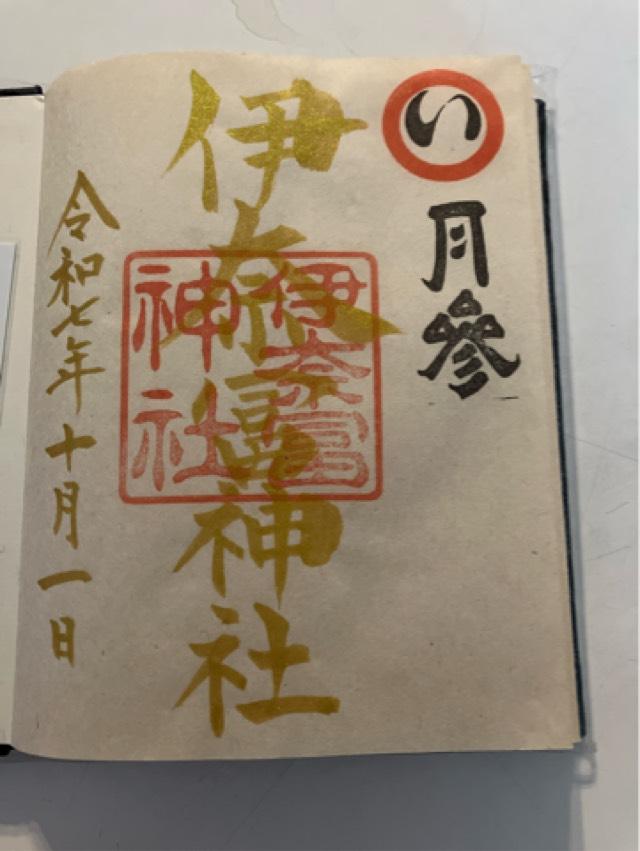 い
月参
伊奈冨神社
伊奈冨
神社
令和七年十月一日